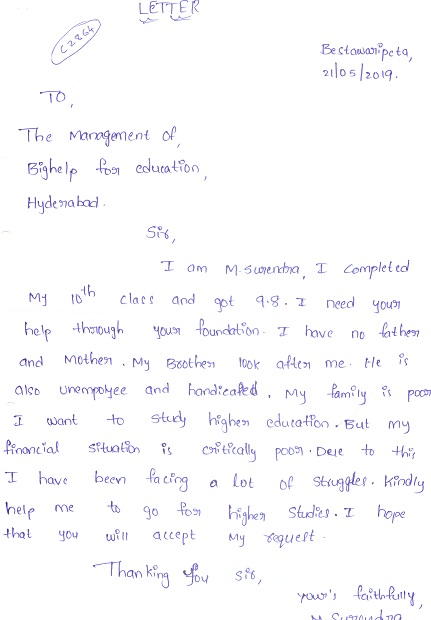 LETTER
C2264
Bestawaripeta,
21/05/2019.
TO,
The Management of,
Bighelp for education,
Hyderabad.
Sir,
I am M.Surendra, I completed
My 10th class and got 9.8. I need your
help through your foundation. I have no father
and Mother. My Brother look after me. He is
also unempolyee and handicafed. My family is poor
I want to study higher education. But my
financial situation is critically poor. Due to this
I have been facing a lot of struggles. Kindly
help me to go for higher studies. I hope
that you will accept My request.
Thanking you sir,
your's faithfully,
M.Surendra